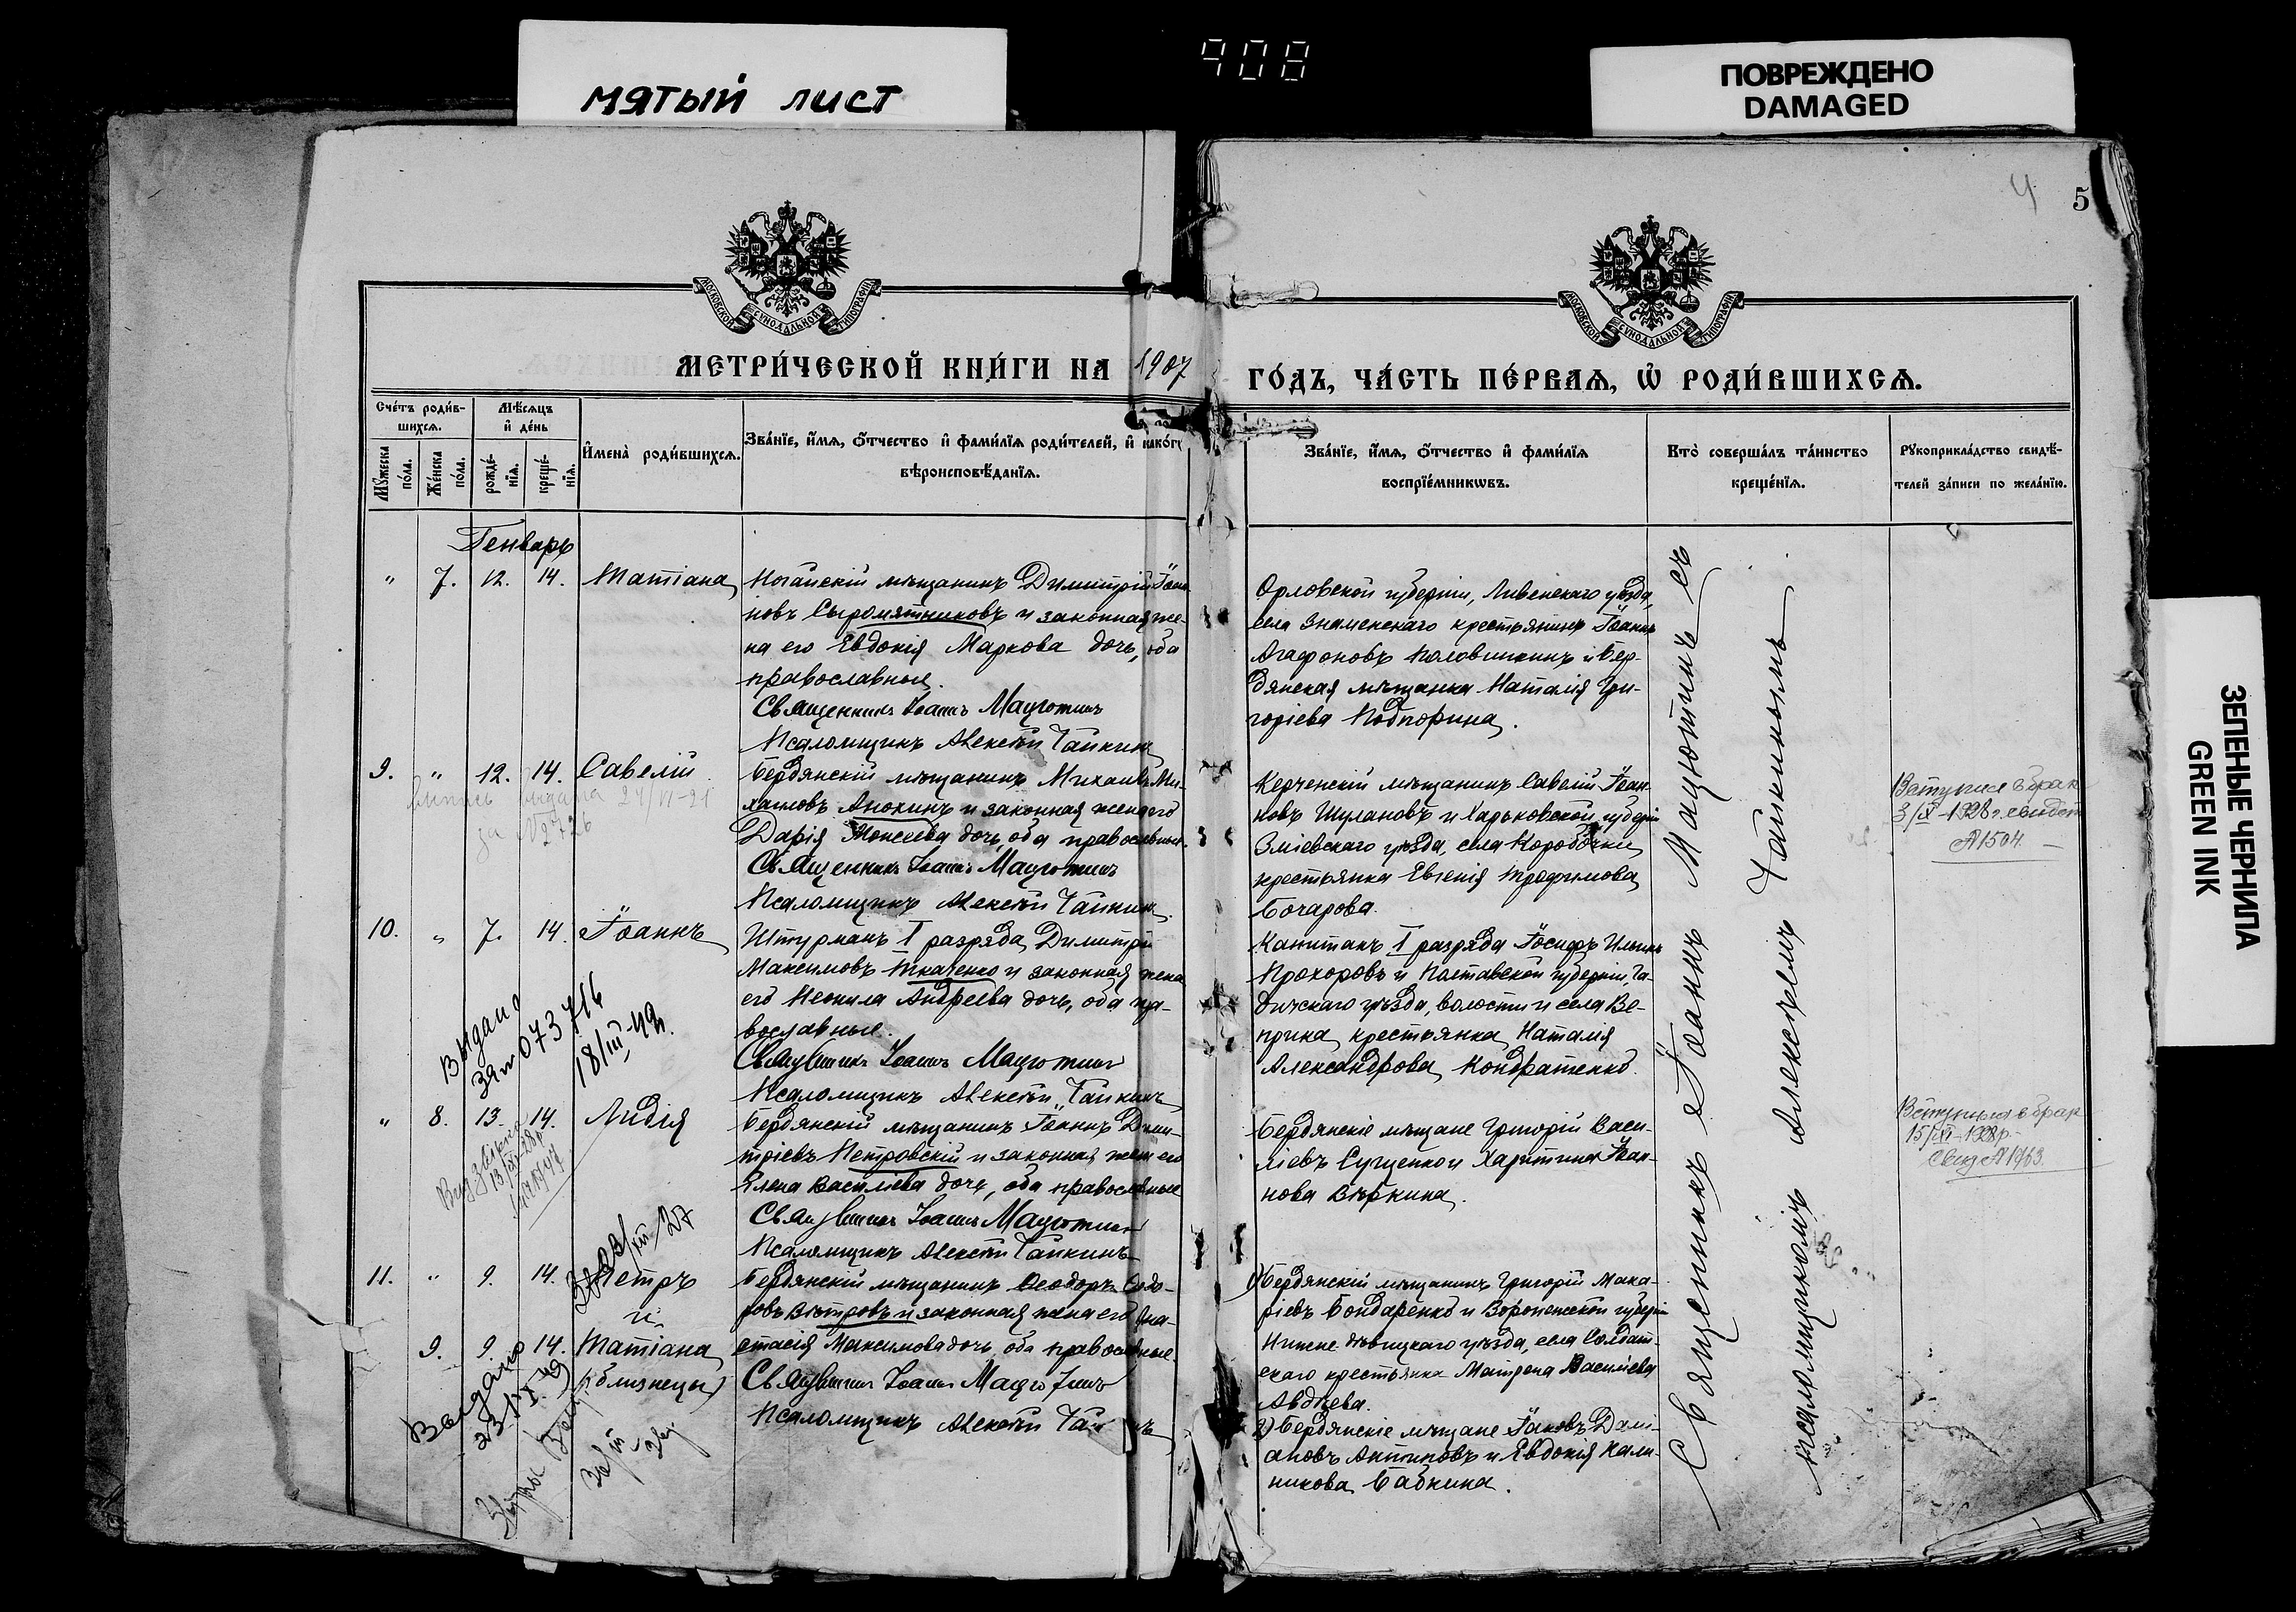 мятый лист
908
ПОВРЕЖДЕНО
DAMAGED
ЗЕЛЕНЫЕ ЧЕРНИЛА
GREEN INK
4
5
МОСКОВСКОЙ СѴНОДАЛЬНОЙ ТИПОГРАФІИ
МОСКОВСКОЙ СѴНОДАЛЬНОЙ ТИПОГРАФІИ
МЕТРИ́ЧЕСКОЙ КНИ́ГИ НА 1907
ГО́ДЪ, ЧА́СТЬ ПЕ́РВАѦ, Ѽ РОДИ́ВШИХСѦ.
Сче́тъ роди́в-
шихсѧ.
Мѣ́сѧцъ
и҆ де́нь
Мꙋ́жеска
по́ла.
Же́нска
по́ла.
рожде́-
нїѧ.
креще́-
нїѧ.
И҆мена̀ роди́вшихсѧ.
Зва́нїе, и҆́мѧ, ѻ҆́тчество и҆ фами́лїѧ роди́телей, и҆ како́гѡ
вѣроисповѣ́данїѧ.
Зва́нїе, и҆́мѧ, ѻ҆́тчество и҆ фами́лїѧ
воспрїе́мникѡвъ.
Кто̀ соверша́лъ та́инство
креще́нїѧ.
Рꙋкоприкла́дство свидѣ́-
телей за́писи по жела́нїю.
Генварь
" 7. 12. 14. Татіана
Ногайскій мѣщанинъ Димитрій Іоан-
новъ Сыромятниковъ и законная же-
на его Евдокія Маркова дочь, оба
православные.
Священникъ Іоаннъ Мацютинъ
Псаломщикъ Алексѣй Чайкинъ
Орловской губерніи, Ливенскаго уѣзда,
села Знаменскаго крестьянинъ Іоаннъ
Агафоновъ Половинкинъ и Бер-
дянская мѣщанка Наталія Гри-
горіева Подпорина.
9. " 12. 14. Савелій
выпись выдана 24/VI-21
за №2726
Бердянскій мѣщанинъ Михаилъ Ми-
хаиловъ Анохинъ и законная жена его
Дарія Моисеева дочь, оба православные.
Священникъ Іоаннъ Мацютинъ
Псаломщикъ Алексѣй Чайкинъ.
Керченскій мѣщанинъ Савелій Іоан-
новъ Шулановъ и Харьковской губерніи
Зміевскаго уѣзда, села Коробочки
крестьянка Евгенія Трофимова
Бочарова.
Вступил в брак
3/IX-1928г. свидет
№1504.
10. " 7. 14. Іоаннъ
Выдана
073716
18/III-49.
Штурманъ I разряда Димитрій
Максимовъ Ткаченко и законная жена
его Неонила Андреева дочь, оба пра-
вославные.
Священникъ Іоаннъ Мацютинъ
Псаломщикъ Алексѣй Чайкинъ
Капитанъ I разряда Іосифъ Ильинъ
Прохоровъ и Полтавской губерніи, Га-
дячскаго уѣзда, волости и села Ве-
прика, крестьянка Наталія
Александрова Кондратенко.
" 8. 13. 14. Лидія
Бердянскій мѣщанинъ Іоаннъ Дими-
тріевъ Петровскій и законная жена его
Елена Василіева дочь, оба православные
Священникъ Іоаннъ Мацютинъ
Псаломщикъ Алексѣй Чайкинъ
Бердянскіе мѣщане Григорій Васи-
ліевъ Сущенко и Харитина Іоан-
нова Вѣркина.
Вступила в брак
15/XI-1928р.
Свид №1763.
11. " 9. 14. Петръ
и
9. 9. 14. Татіана
(близнецы)
Выдано
23/IX.49
Бердянскій мѣщанинъ Ѳеодоръ Ѳедо-
ровъ Вѣтровъ и законная жена его Ана-
стасія Максимова дочь, оба православные.
Священникъ Іоаннъ Мацютинъ
Псаломщикъ Алексѣй
1) Бердянскій мѣщанинъ Григорій Мака-
ріевъ Бондаренко и Воронежской губерніи
Нижне-Дѣвицкаго уѣзда, села Солдат-
скаго крестьянка Матрона Василіева
Авдѣева.
2) Бердянскіе мѣщане Іаковъ Демі-
ановъ Антиповъ и Евдокія Кали-
никова Бабкина.
Священникъ Іоаннъ Мацютинъ съ
псаломщикомъ Алексѣемъ Чайкинымъ